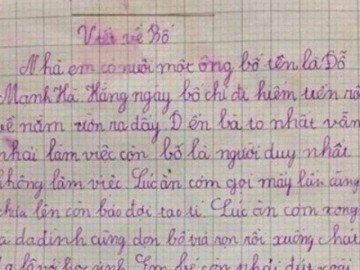 Viết về Bố
Nhà em có nuôi một ông bố tên là Đỗ
Mạnh Hà. Hằng ngày bố chỉ đi kiếm tiền rồi
về nằm ườn ra đấy. Đến bà to nhất vẫn
phải làm việc còn bố là người duy nhất
không làm việc. Lúc ăn cơm gọi mấy lần cũng
chưa lên còn bảo đợi tao tí. Lúc ăn cơm xong
cả da đình cùng dọn bố trả dọn rồi xuống chat